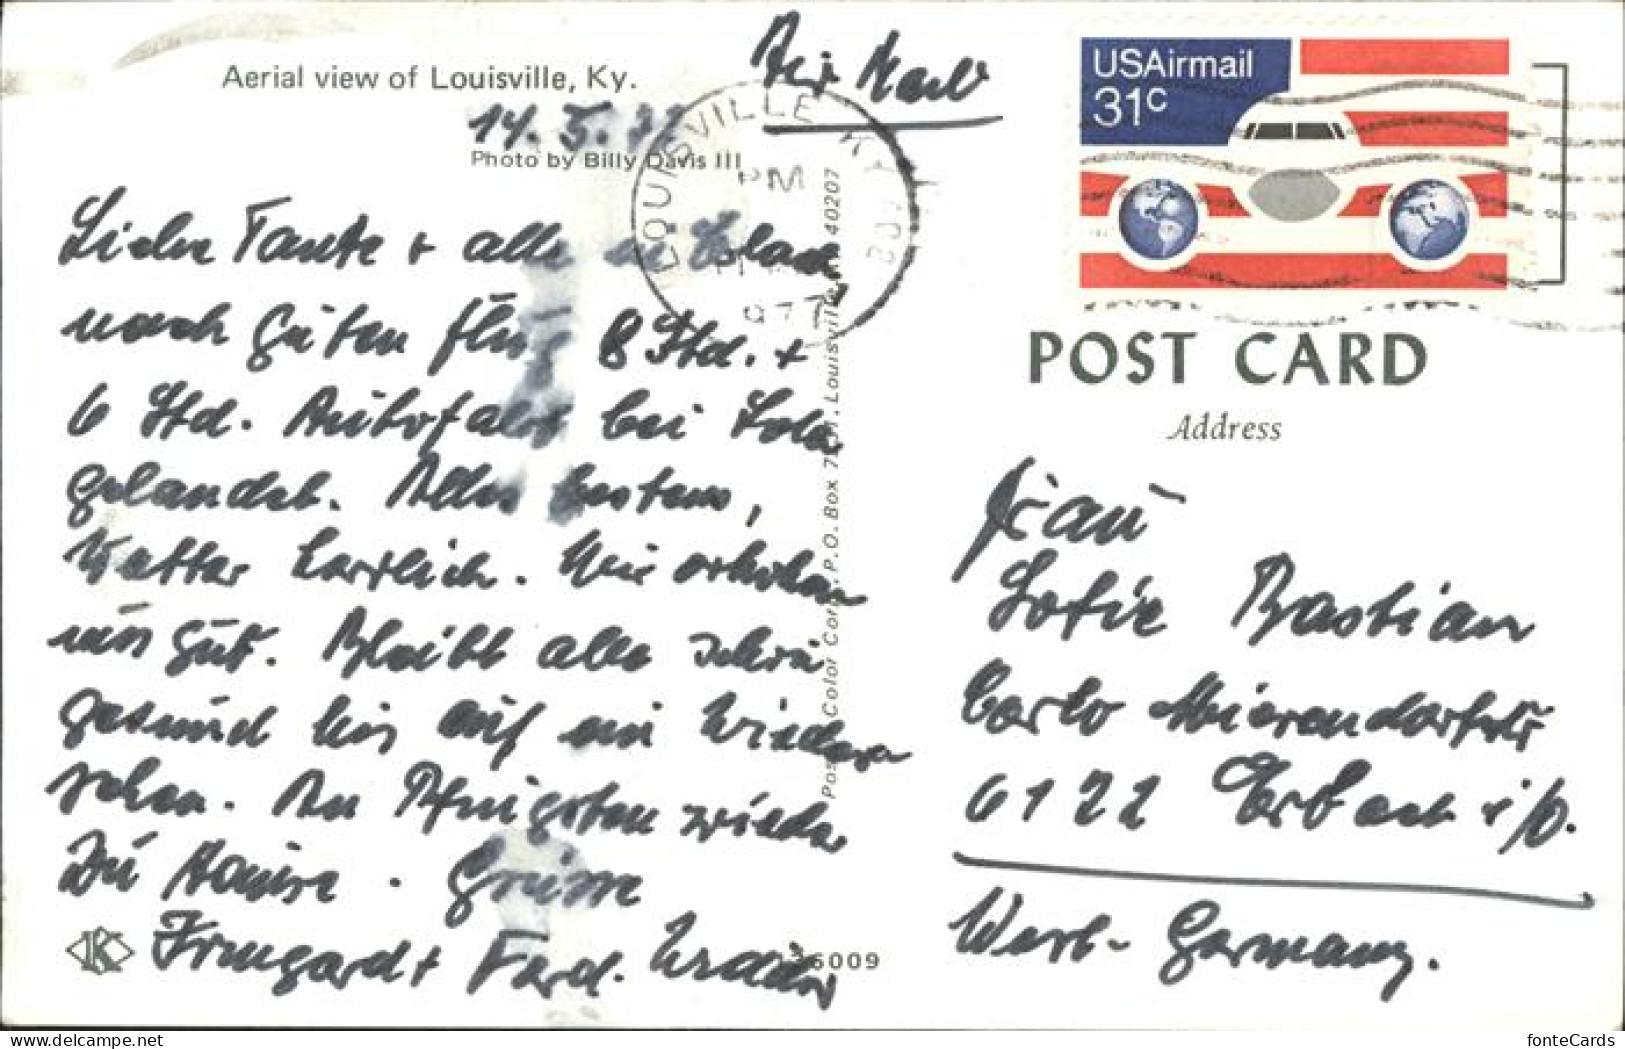 Aerial view of Louisville, Ky.
14. 5. 
Photo by Billy Davis III
Air Mail
USAirmail
31c
LOUISVILLE KY 402
PM
977
Liebe Tante + alle in
nach guten Flug 8 Std. +
6 Std. Autofahrt bei Lola
gelandet. Alles bestens,
Wetter herrlich. Wir erholen
uns gut. Bleibt alle schön
gesund bis auf ein Wieder
sehen. An Pfingsten wieder
zu Hause. Grüsse
Irmgard + Ferd.
Post Color Corp., P.O. Box 7, Louisville, 40207
6009
K
POST CARD
Address
Frau
Sofie Bastian
Carlo Mierendorfstr
6122 Erbach i/O.
West-Germany.
fonteCards